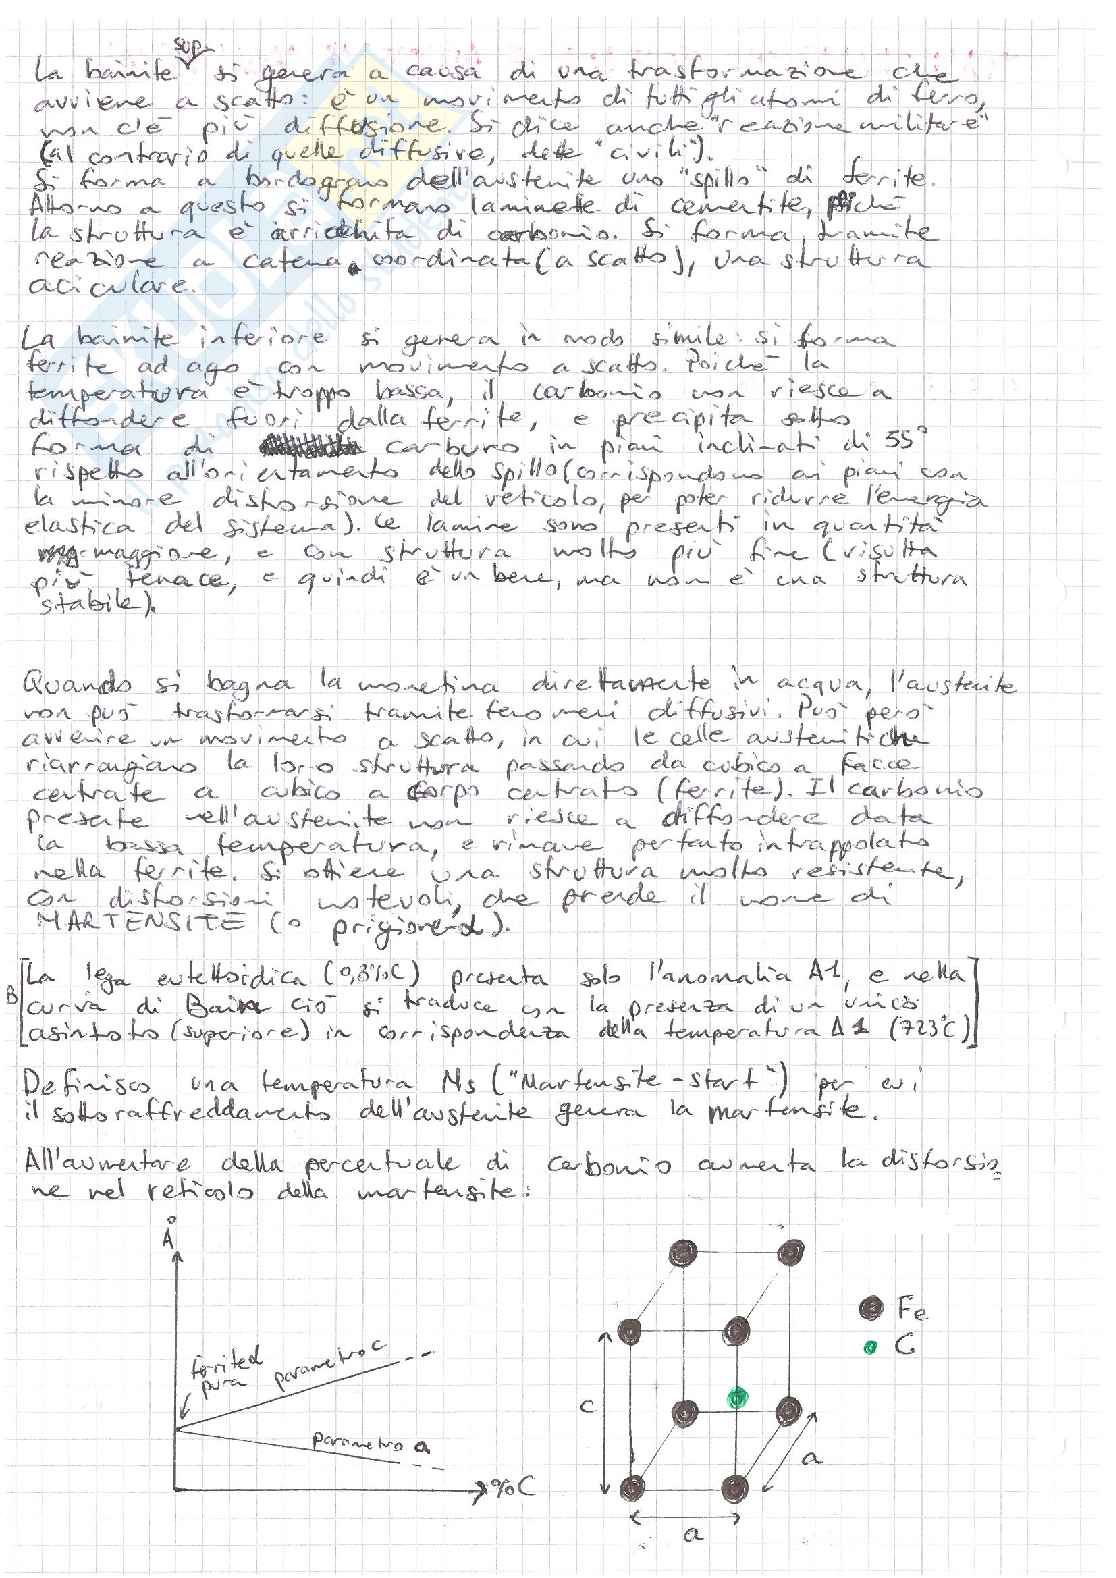 sup.
La bainite si genera a causa di una trasformazione che
avviene a scatto: è un movimento di tutti gli atomi di ferro,
non c'è più diffusione. Si dice anche "reazione militare"
(al contrario di quelle diffusive, dette "civili").
Si forma a bordograno dell'austenite uno "spillo" di ferrite.
Attorno a questo si formano laminette di cementite, poiché
la struttura è arricchita di carbonio. Si forma, tramite
reazione a catena coordinata (a scatto), una struttura
aciculare.
La bainite inferiore si genera in modo simile: si forma
ferrite ad ago con movimento a scatto. Poiché la
temperatura è troppo bassa, il carbonio non riesce a
diffondere fuori dalla ferrite, e precipita sotto
forma di carburo in piani inclinati di 55°
rispetto all'orientamento dello spillo (corrispondono ai piani con
la minore distorsione del reticolo, per poter ridurre l'energia
elastica del sistema). Le lamine sono presenti in quantità
maggiore, e con struttura molto più fine (risulta
più tenace, e quindi è un bene, ma non è una struttura
stabile).
Quando si bagna la monetina direttamente in acqua, l'austenite
non può trasformarsi tramite fenomeni diffusivi. Può però
avvenire un movimento a scatto, in cui le celle austenitiche
riarrangiano la loro struttura passando da cubico a facce
centrate a cubico a corpo centrato (ferrite). Il carbonio
presente nell'austenite non riesce a diffondere data
la bassa temperatura, e rimane pertanto intrappolato
nella ferrite. Si ottiene una struttura molto resistente,
con distorsioni notevoli, che prende il nome di
MARTENSITE (o prigioniera).
B [La lega eutettoidica (0,8%C) presenta solo l'anomalia A1, e nella
curva di Bain ciò si traduce con la presenza di un unico
asintoto (superiore) in corrispondenza della temperatura A1 (723°C)]
Definisco una temperatura Ms ("Martensite-start") per cui
il sottoraffreddamento dell'austenite genera la martensite.
All'aumentare della percentuale di carbonio aumenta la distorsio
ne nel reticolo della martensite:
Å
ferrite α
pura
parametro c
parametro a
%C
Fe
C
c
a
a